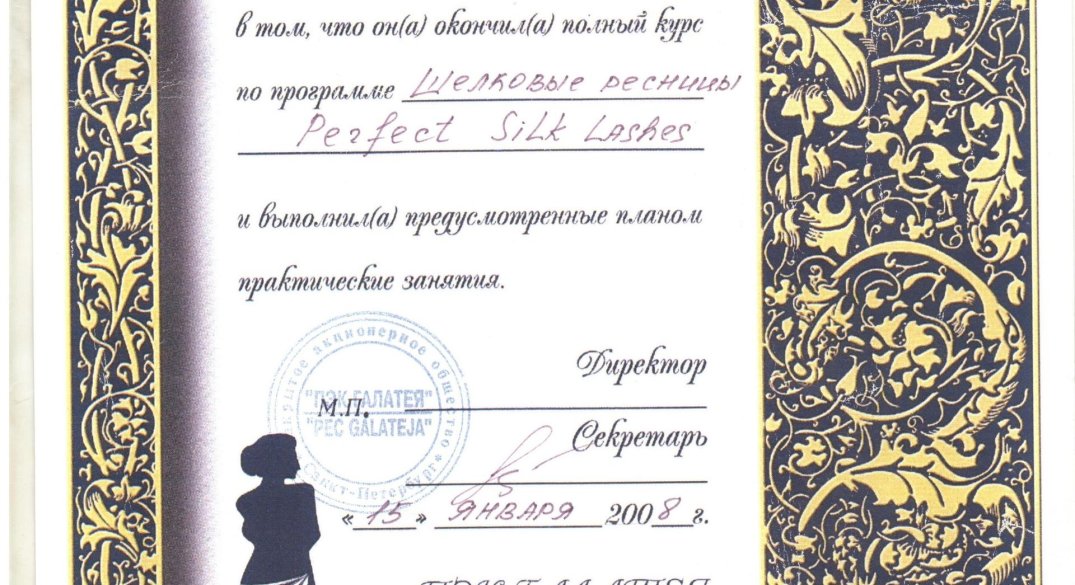 в том, что он(а) окончил(а) полный курс
по программе Шелковые ресницы
Perfect Silk Lashes
и выполнил(а) предусмотренные планом
практические занятия.
акционерное общество
"ПЭК ГАЛАТЕЯ"
"PEC GALATEJA"
Санкт-Петербург
Директор
М.П.
Секретарь
«15» ЯНВАРЯ 2008 г.